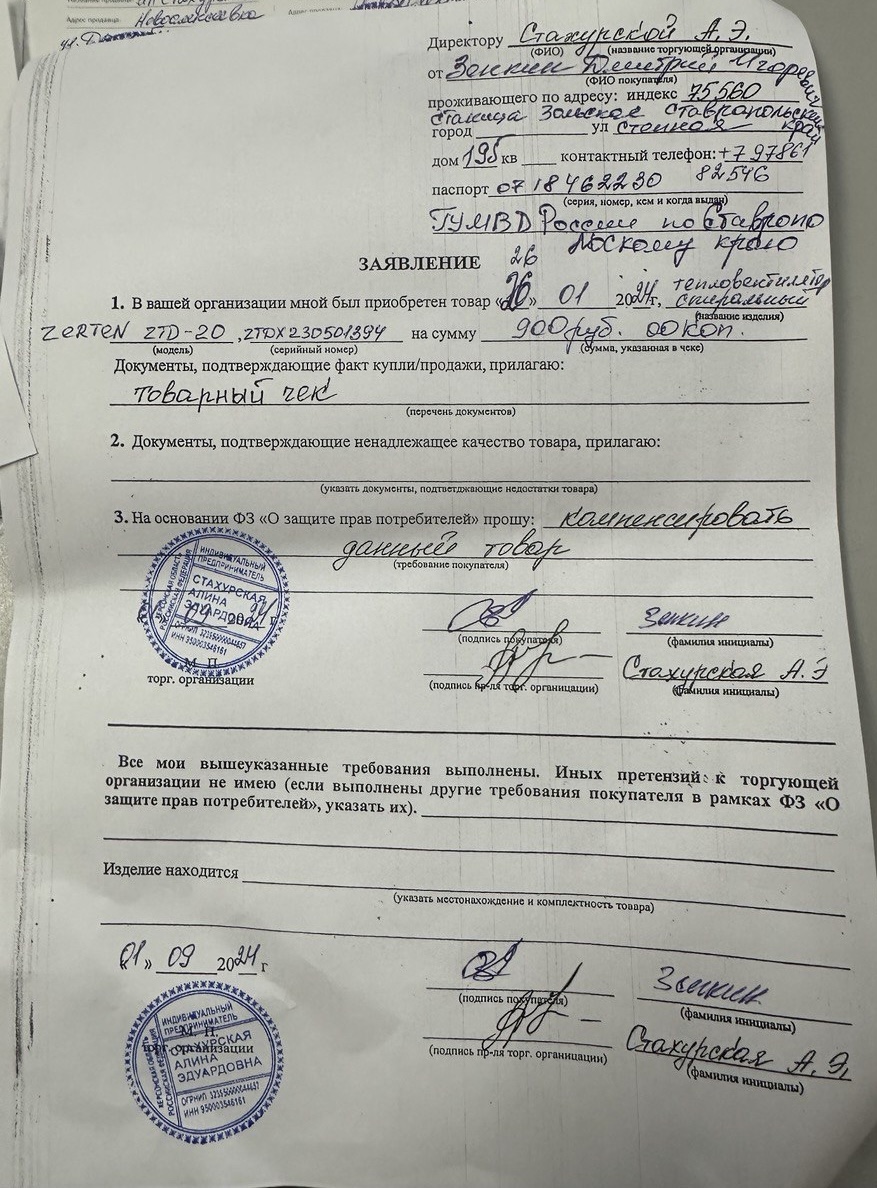 Адрес продавца: Новоалексеевка
Директору Стахурской А.Э.
(ФИО) (название торгующей организации)
от Зенкин Дмитрий Игоревич
(ФИО покупателя)
проживающего по адресу: индекс 75560
станица Зольская Ставропольский край
город ____ ул степная
дом 195 кв ____ контактный телефон: +7 97861
82546
паспорт 07 18 462230
(серия, номер, кем и когда выдан)
ГУМВД России по Ставропо
льскому краю
ЗАЯВЛЕНИЕ
26
1. В вашей организации мной был приобретен товар «26» 01 2024г, тепловентилятор
спиральный
(название изделия)
ZERTEN ZTD-20 , ZTDX230501394 на сумму 900руб. 00коп.
(модель) (серийный номер) (сумма, указанная в чеке)
Документы, подтверждающие факт купли/продажи, прилагаю:
товарный чек
(перечень документов)
2. Документы, подтверждающие ненадлежащее качество товара, прилагаю:
(указать документы, подтветджающие недостатки товара)
3. На основании ФЗ «О защите прав потребителей» прошу: компенсировать
данный товар
(требование покупателя)
ИНДИВИДУАЛЬНЫЙ
ПРЕДПРИНИМАТЕЛЬ
ХЕРСОНСКАЯ ОБЛАСТЬ
РОССИЙСКАЯ ФЕДЕРАЦИЯ
СТАХУРСКАЯ
АЛИНА
ЭДУАРДОВНА
ОГРНИП 323550000044657
ИНН 950003546161
09 2024 г
Зенкин
(подпись покупателя) (фамилия инициалы)
М. П.
торг. организации
Стахурская А.Э
(подпись пр-ля торг. органицации) (фамилия инициалы)
Все мои вышеуказанные требования выполнены. Иных претензий к торгующей
организации не имею (если выполнены другие требования покупателя в рамках ФЗ «О
защите прав потребителей», указать их).
Изделие находится
(указать местонахождение и комплектность товара)
«01» 09 2024 г
Зенкин
(подпись покупателя) (фамилия инициалы)
ИНДИВИДУАЛЬНЫЙ
ПРЕДПРИНИМАТЕЛЬ
ХЕРСОНСКАЯ ОБЛАСТЬ
РОССИЙСКАЯ ФЕДЕРАЦИЯ
М. П.
торг. организации
СТАХУРСКАЯ
АЛИНА
ЭДУАРДОВНА
ОГРНИП 323550000044657
ИНН 950003546161
Стахурская А.Э.
(подпись пр-ля торг. органицации) (фамилия инициалы)